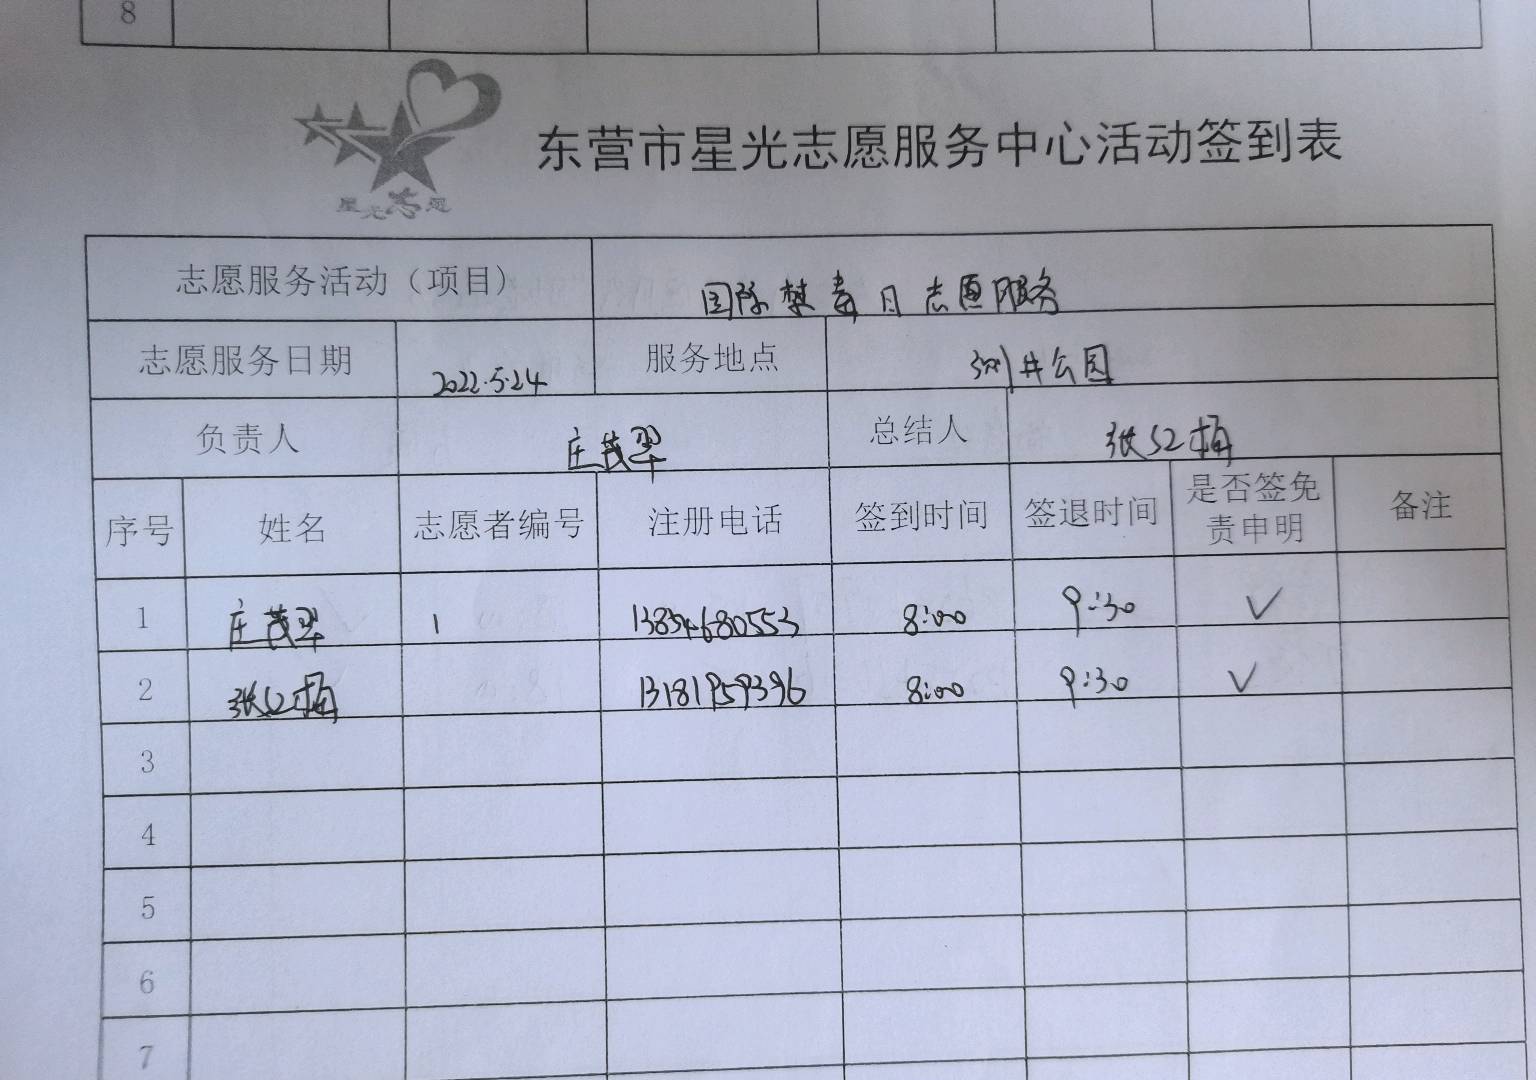 8
星光志愿
东营市星光志愿服务中心活动签到表
志愿服务活动（项目） 国际禁毒日志愿服务
志愿服务日期 2022.5.24 服务地点 井公园
负责人 庄茂翠 总结人 张红梅
序号 姓名 志愿者编号 注册电话 签到时间 签退时间 是否签免责申明 备注
1 庄茂翠 1 13854680553 8:00 9:30 ✓
2 张红梅 13181959396 8:00 9:30 ✓
3
4
5
6
7